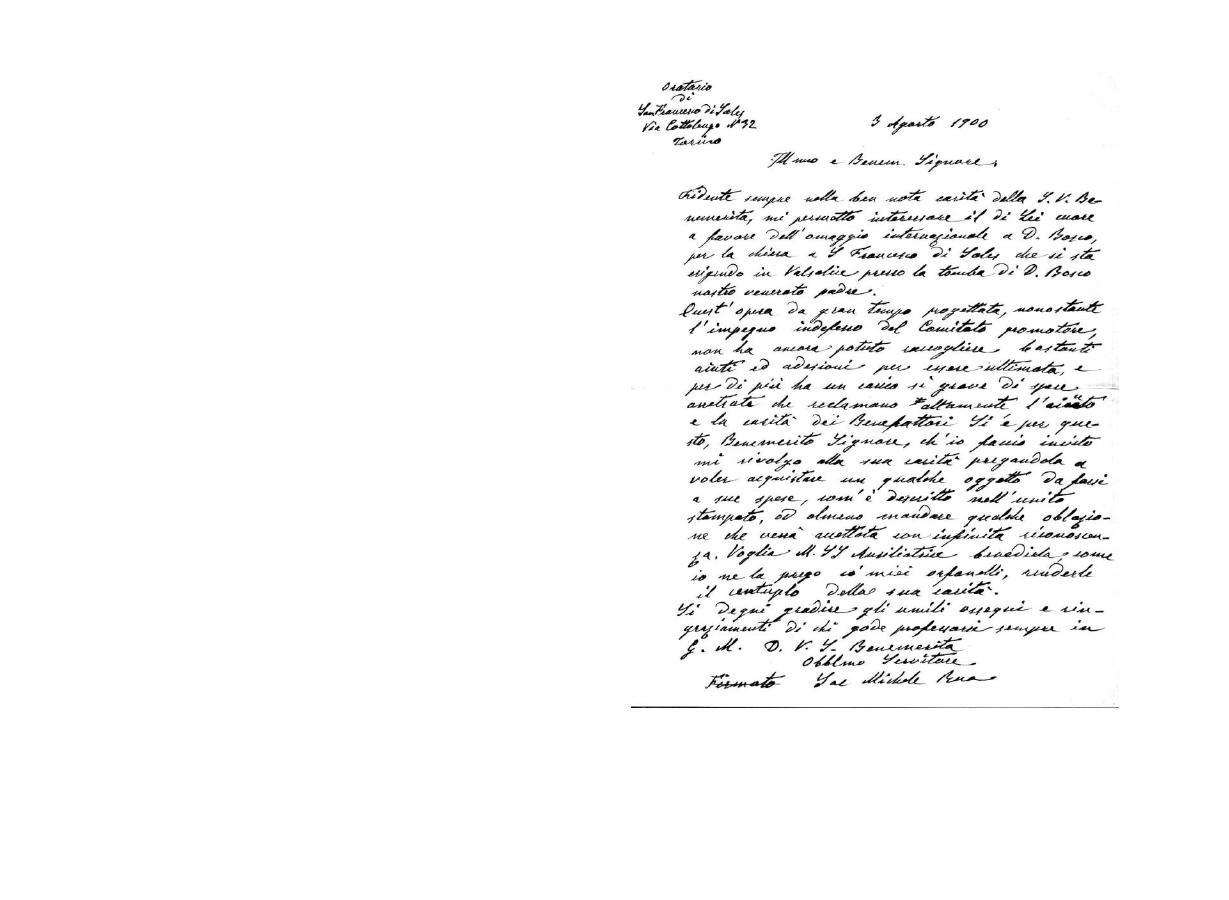 Oratorio
di
San Francesco di Sales
Via Cottolengo N° 32
Torino
3 Agosto 1900
Ill mo e Benem. Signore,
Fidente sempre nella ben nota carità della S. V. Be-
nemerita, mi permetto interessare il di Lei cuore
a favore dell'omaggio internazionale a D. Bosco,
per la chiesa a S Francesco di Sales che si sta
erigendo in Valsalice presso la tomba di D. Bosco
nostro venerato padre.
Quest'opera da gran tempo progettata, nonostante
l'impegno indefesso del Comitato promotore,
non ha ancora potuto raccogliere bastanti
aiuti ed adesioni per essere ultimata, e
per di più ha un carico sì grave di spese
arretrate che reclamano altamente l'aiuto
e la carità dei Benefattori Si è per que-
sto, Benemerito Signore, ch'io faccio invito
mi rivolgo alla sua carità pregandola a
voler acquistare un qualche oggetto da farsi
a sue spese, com'è descritto nell'unito
stampato, od almeno mandare qualche oblazio-
ne che verrà accettata con infinita riconoscen-
za. Voglia M. SS Ausiliatrice benedirla, come
io ne la prego co' miei orfanelli, renderle
il centuplo della sua carità.
Si degni gradire gli umili ossequi e rin-
graziamenti di chi gode professarsi sempre in
G. M. D. V. S. Benemerita
Obblmo Servitore
Firmato Sac Michele Rua